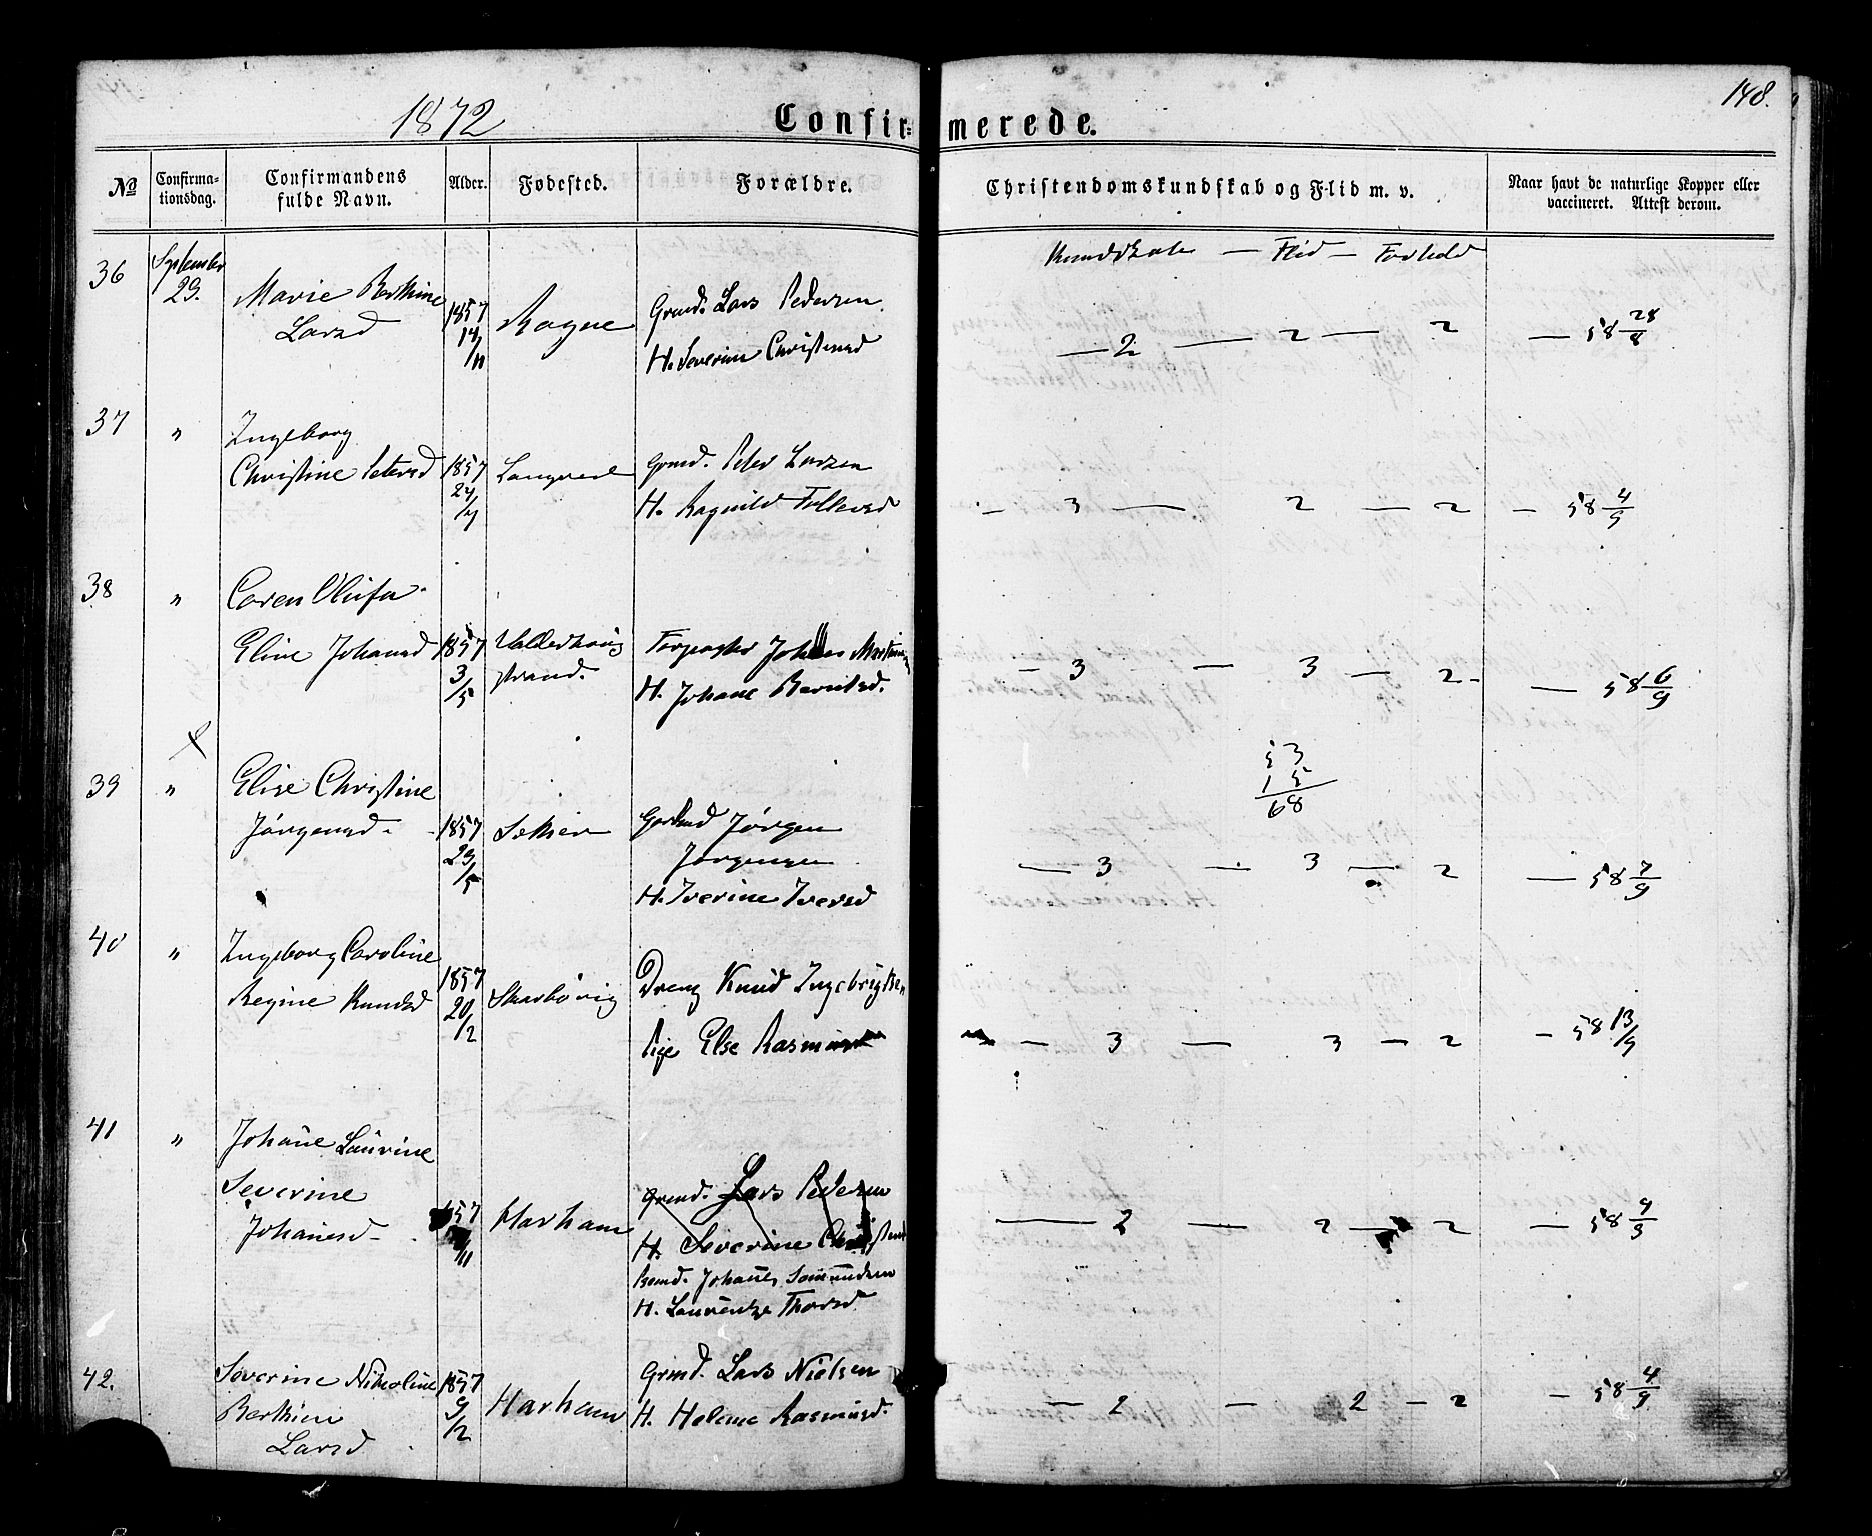 148.
1872
Confirmerede.
No
Confirma-
tionsdag.
Confirmandens
fulde Navn.
Alder.
Fødested.
Forældre.
Christendomskundskab og Flid m. v.
Naar havt de naturlige Kopper eller
vaccineret. Attest derom.
Kundskab — Flid — Forhold
36
September
29.
Marie Berthine
Larsd
1857
14/11
Rogne
Grmd. Lars Pedersen
H. Severine Christensd
— 2 — 2 — 2 — 58 28/8
37
"
Ingeborg
Christine Petersd
1857
24/7
Longved
Grmd. Peter Larsen
H. Ragnild Tollevsd
— 3 — 2 — 2 — 58 4/9
38
"
Caren Olufa
Eline Johansd
1857
3/5
Valderhoug
strand.
Forpagter Johan Martinus
H. Johane Berntsd.
— 3 — 3 — 2 — 58 6/9
39
"
Elise Christine
Jørgensd.
1857
29/5
Sether
Gaardmd Jørgen
Jørgensen
H. Iverine Iversd
53
15
68
— 3 — 3 — 2 — 58 7/9
40
"
Ingeborg Caroline
Regine Knudsd
1857
20/2
Skarbøvig
Dreng Knud Ingebrigtsen
Pige Else Rasmusd
— 3 — 3 — 2 — 58 13/9
41
"
Johane Laurine
Severine
Johanesd
1857
/11
Harham
Grmd. Lars Pedersen
H. Severine Christensd
Johanes
H. Laurentze Thorsd
— 2 — 2 — 2 — 58 4/9
42.
Severine Nikoline
Berthine
Larsd
1857
9/2
Harham
Grmd. Lars Nielsen
H. Helene Rasmusd.
— 2 — 2 — 2 — 58 4/9